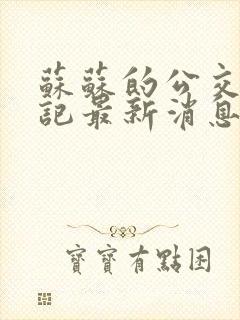 蘇蘇的公交
記最新消息
寶寶有點困